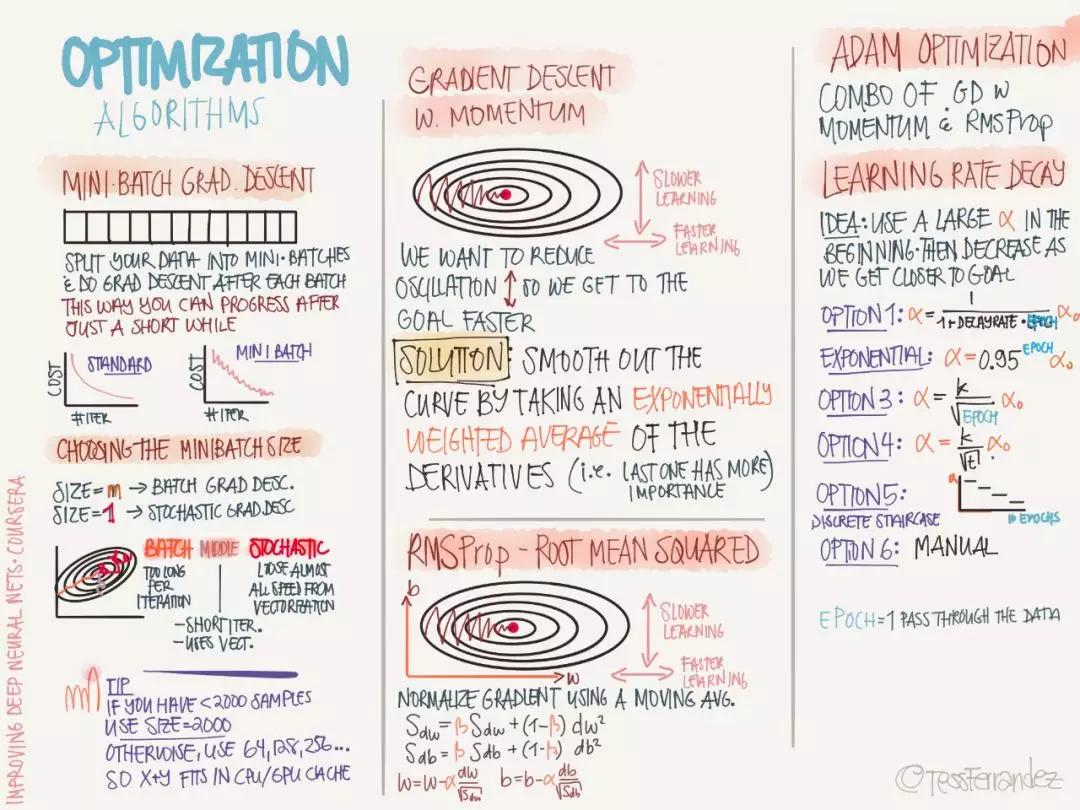 OPTIMIZATION
ALGORITHMS
MINI-BATCH GRAD. DESCENT
SPLIT YOUR DATA INTO MINI-BATCHES
& DO GRAD DESCENT AFTER EACH BATCH
THIS WAY YOU CAN PROGRESS AFTER
JUST A SHORT WHILE
COST
STANDARD
# ITER
COST
MINI BATCH
# ITER
CHOOSING THE MINIBATCH SIZE
SIZE=m → BATCH GRAD DESC.
SIZE=1 → STOCHASTIC GRAD DESC
BATCH MIDDLE STOCHASTIC
TOO LONG
PER
ITERATION
LOOSE ALMOST
ALL SPEED FROM
VECTORIZATION
-SHORT ITER.
-USES VECT.
TIP
IF YOU HAVE <2000 SAMPLES
USE SIZE=2000
OTHERWISE, USE 64,128,256...
SO X+Y FITS IN CPU/GPU CACHE
IMPROVING DEEP NEURAL NETS · COURSERA
GRADIENT DESCENT
W. MOMENTUM
SLOWER
LEARNING
FASTER
LEARNING
WE WANT TO REDUCE
OSCILLATION ↕ SO WE GET TO THE
GOAL FASTER
SOLUTION: SMOOTH OUT THE
CURVE BY TAKING AN EXPONENTIALLY
WEIGHTED AVERAGE OF THE
DERIVATIVES (i.e. LAST ONE HAS MORE)
IMPORTANCE
RMSProp - ROOT MEAN SQUARED
b
SLOWER
LEARNING
w
FASTER
LEARNING
NORMALIZE GRADIENT USING A MOVING AVG.
Sdw = β Sdw + (1-β) dw²
Sdb = β Sdb + (1-β) db²
w=w-α dw/√Sdw b=b-α db/√Sdb
ADAM OPTIMIZATION
COMBO OF GD W
MOMENTUM & RMSProp
LEARNING RATE DECAY
IDEA: USE A LARGE α IN THE
BEGINNING. THEN DECREASE AS
WE GET CLOSER TO GOAL
OPTION 1: α = 1/(1+DECAYRATE·EPOCH) α₀
EXPONENTIAL: α = 0.95^EPOCH α₀
OPTION 3: α = k/√EPOCH α₀
OPTION 4: α = k/√t α₀.
OPTION 5:
DISCRETE STAIRCASE
α
# EPOCHS
OPTION 6: MANUAL
EPOCH = 1 PASS THROUGH THE DATA
@TessFerrandez